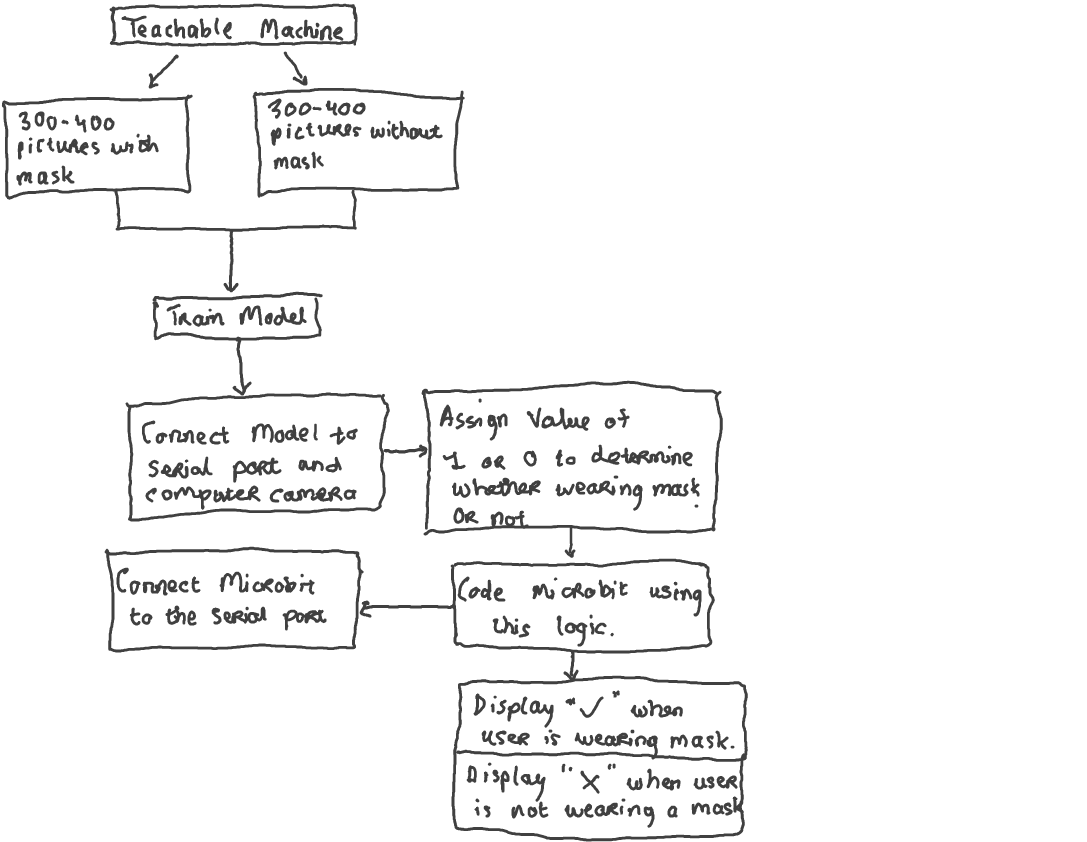 Teachable Machine
300-400
pictures with
mask
300-400
pictures without
mask
Train Model
Connect Model to
serial port and
computer camera
Assign Value of
1 or 0 to determine
whether wearing mask
or not
Connect Microbit
to the serial port
Code microbit using
this logic.
Display "✓" when
user is wearing mask.
Display "X" when user
is not wearing a mask